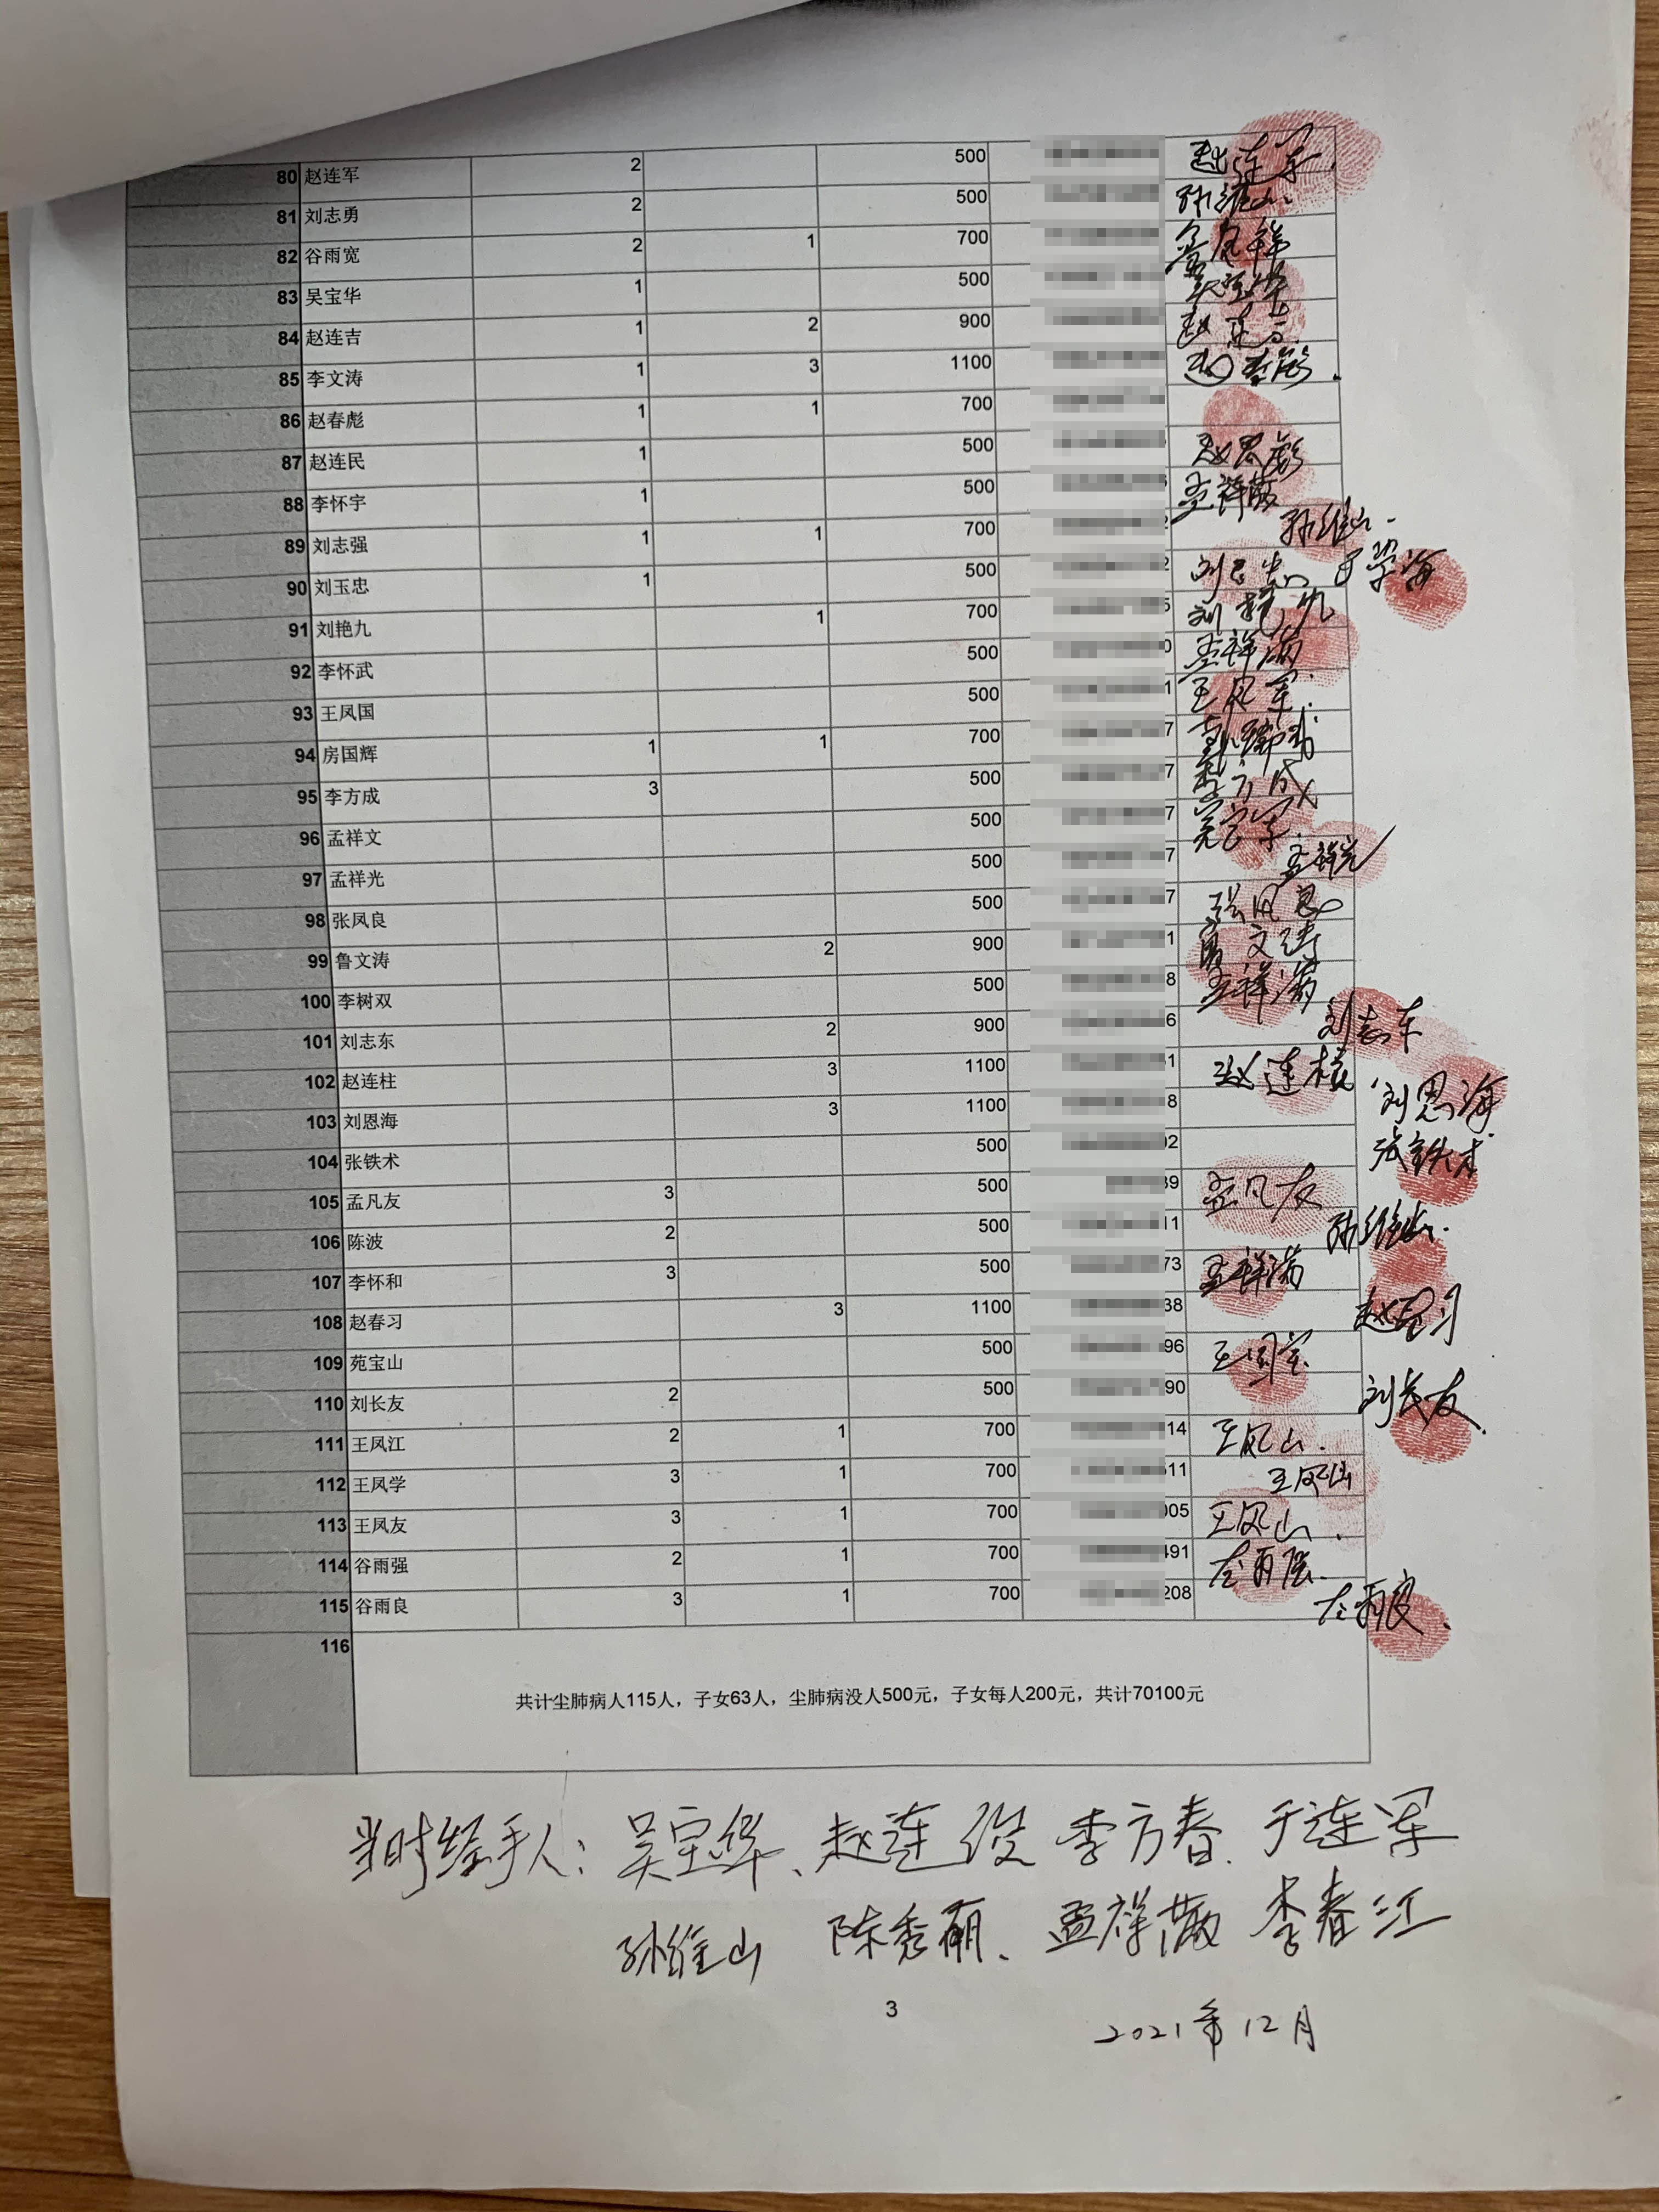 80 赵连军 2 500 赵连军
81 刘志勇 2 500 孙维山
82 谷雨宽 2 1 700
83 吴宝华 1 500 吴宝华
84 赵连吉 1 2 900 赵连吉
85 李文涛 1 3 1100
86 赵春彪 1 1 700
87 赵连民 1 500 赵春彪
88 李怀宇 1 500 孟祥满
89 刘志强 1 1 700 孙维山
90 刘玉忠 1 500 刘玉忠
91 刘艳九 1 700 刘艳九
92 李怀武 500 孟祥满
93 王凤国 500 王凤军
94 房国辉 1 1 700
95 李方成 3 500 李方成
96 孟祥文 500
97 孟祥光 500 孟祥光
98 张凤良 500 张凤良
99 鲁文涛 2 900 鲁文涛
100 李树双 500 孟祥满
101 刘志东 2 900 刘志东
102 赵连柱 3 1100 赵连柱
103 刘恩海 3 1100 刘恩海
104 张铁术 500 张铁术
105 孟凡友 3 500 孟凡友
106 陈波 2 500 孙维山
107 李怀和 3 500 孟祥满
108 赵春习 3 1100 赵春习
109 苑宝山 500
110 刘长友 2 500 刘长友
111 王凤江 2 1 700 王凤山
112 王凤学 3 1 700 王凤山
113 王凤友 3 1 700 王凤山
114 谷雨强 2 1 700 谷雨强
115 谷雨良 3 1 700 谷雨良
116
共计尘肺病人115人，子女63人，尘肺病没人500元，子女每人200元，共计70100元
当时经手人：吴宝华、赵连俊 李方春、于连军
孙维山 陈秀萌、孟祥满 李春江
3
2021年12月